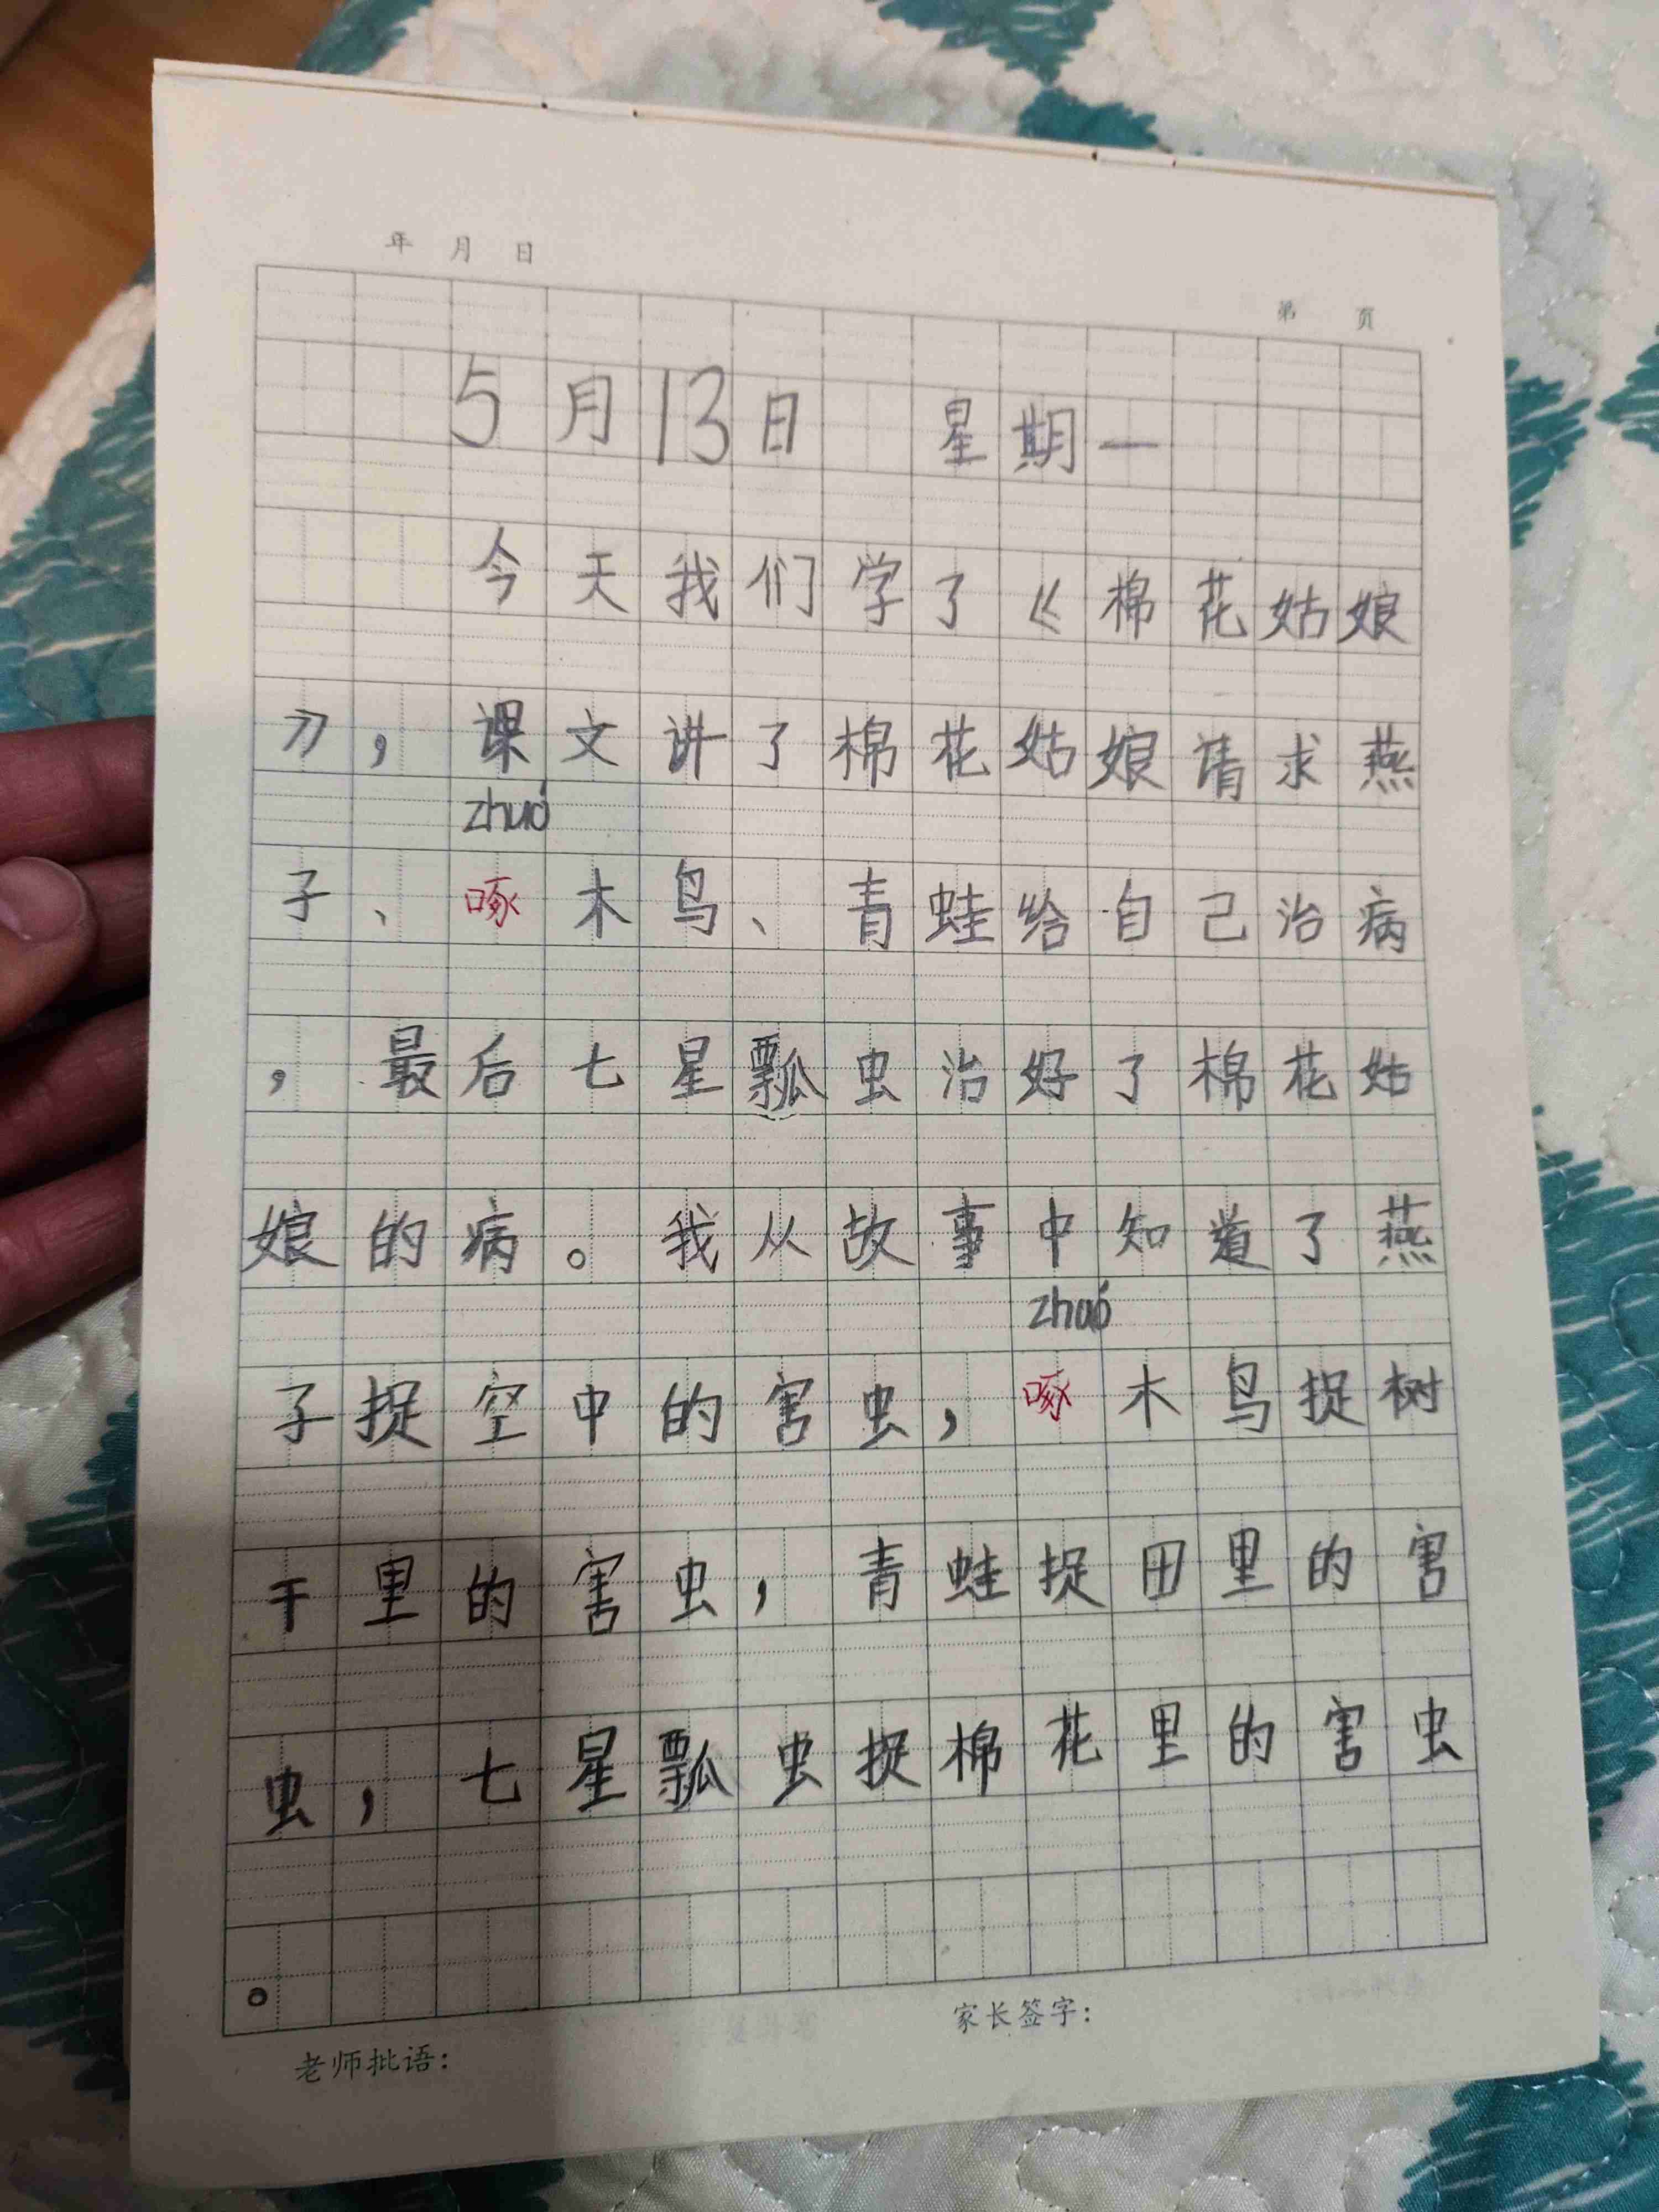 年 月 日
第 页
5月13日 星期一
今天我们学了《棉花姑娘
》，课文讲了棉花姑娘请求燕
zhuó
子、啄木鸟、青蛙给自己治病
，最后七星瓢虫治好了棉花姑
娘的病。我从故事中知道了燕
zhuó
子捉空中的害虫，啄木鸟捉树
干里的害虫，青蛙捉田里的害
虫，七星瓢虫捉棉花里的害虫
。
家长签字：
老师批语：